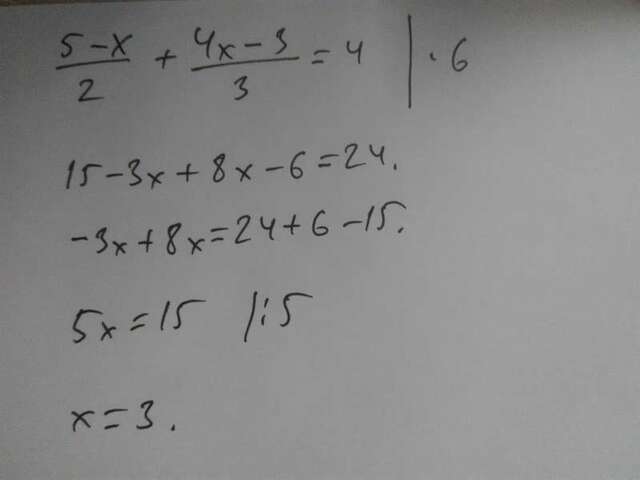 (5-x)/2 + (4x-3)/3 = 4 | · 6
15-3x+8x-6=24.
-3x+8x=24+6-15.
5x=15 |:5
x=3.